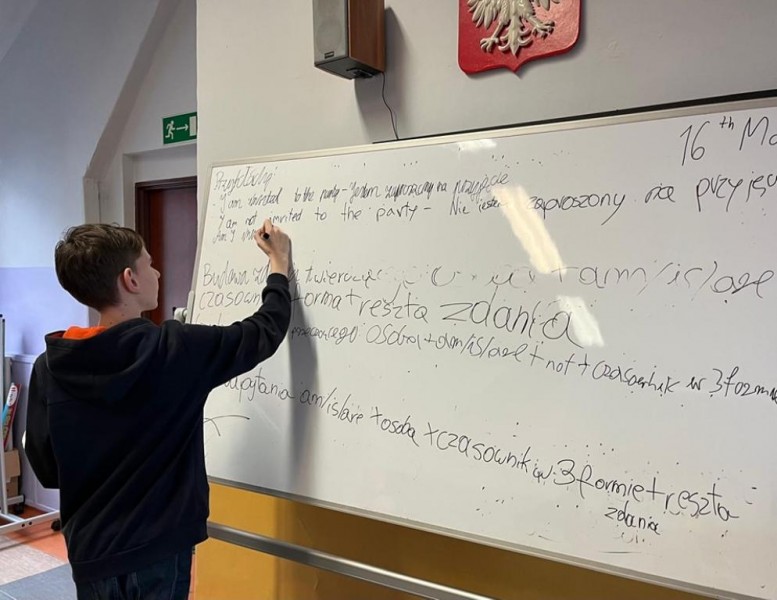 16th Ma
Przykłady
I am invited to the party - Jestem zaproszony na przyjęcie
I am not invited to the party - Nie jestem zaproszony na przyjęci
Am I
Budowa twierdzące am/is/are
czasownik forma + reszta zdania
osoba + am/is/are + not + czasownik w 3 formie
zapytania am/is/are + osoba + czasownik w 3 formie + reszta
zdania